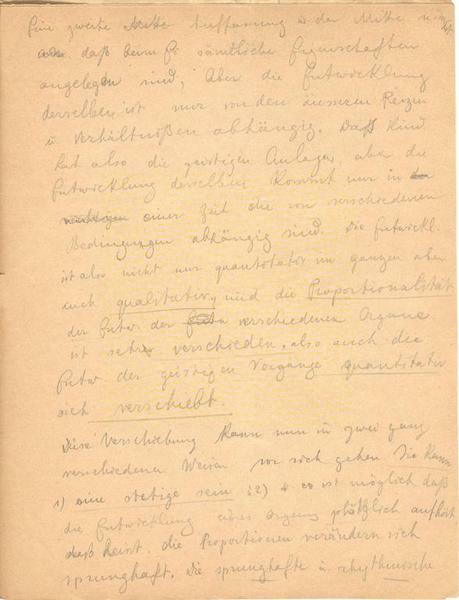 Eine zweite Auffassung ist der Mitte
daß beim Es sämtliche Eigenschaften
angelegen sind, Aber die Entwicklung
derselben ist nur von den äusseren Reizen
u Verhältnißen abhängig. Daß Kind
hat also die geistigen Anlagen, aber die
Entwicklung derselben kommt nur in
einer Zeit die von verschiedenen
Bedingungen abhängig sind. Die Entwickl.
ist also nicht nur quantotativ im ganzen aber
auch qualitativ, und die Proportionalität
der Entw. der verschiedenen Organe
ist sehr verschieden, also auch die
Entw der geistigen Vorgänge quantitativ
sich verschiebt.
Diese Verschiebung kann nun in zwei ganz
verschiedenen Weisen vor sich gehen. Sie kann
1) eine stetige sein 2) es ist möglich daß
die Entwicklung eines Organs plötzlich aufhört
daß heist. die Proportionen verändern sich
sprunghaft. Die sprunghafte u. rhythmische